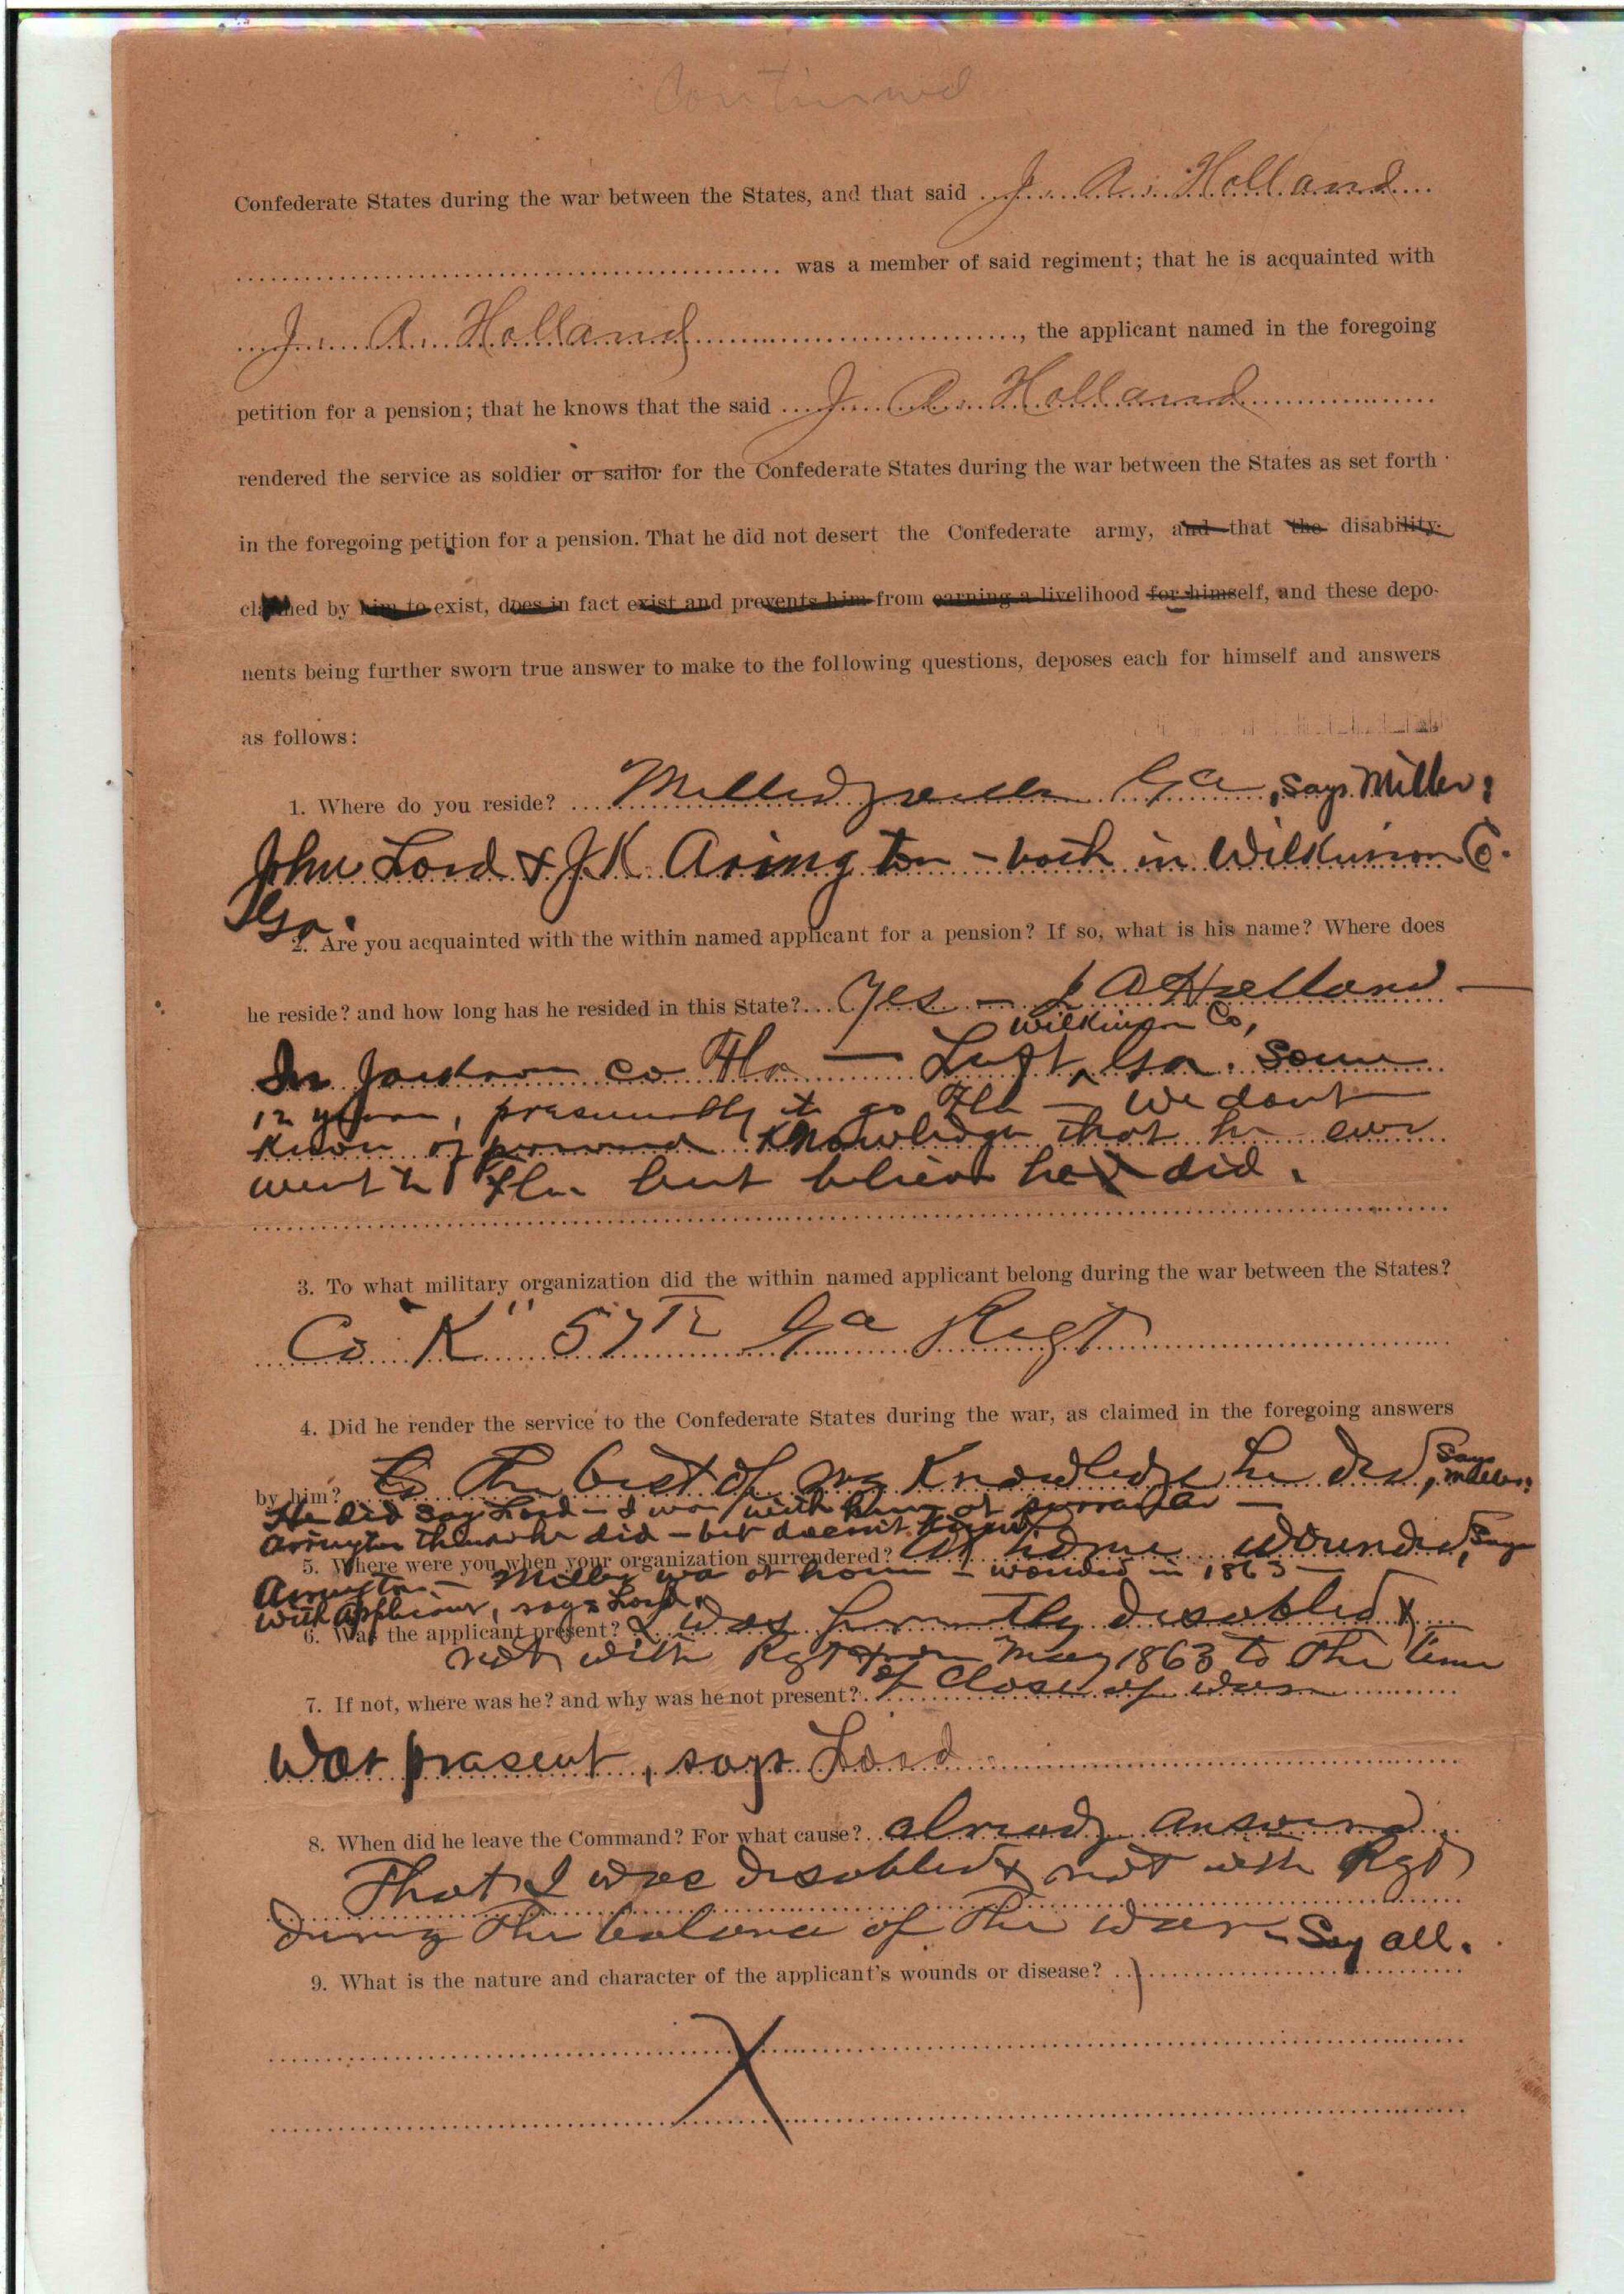 Continued
Confederate States during the war between the States, and that said J. A. Holland
was a member of said regiment; that he is acquainted with
J. A. Holland, the applicant named in the foregoing
petition for a pension; that he knows that the said J. A. Holland
rendered the service as soldier or sailor for the Confederate States during the war between the States as set forth
in the foregoing petition for a pension. That he did not desert the Confederate army, and that the disability
claimed by him to exist, does in fact exist and prevents him from earning a livelihood for himself, and these depo-
nents being further sworn true answer to make to the following questions, deposes each for himself and answers
as follows:
1. Where do you reside? Milledgeville Ga, says Miller;
John Lord & J.K. Arington - both in Wilkinson Co.
Ga.
2. Are you acquainted with the within named applicant for a pension? If so, what is his name? Where does
he reside? and how long has he resided in this State? Yes - J A Holland -
Wilkinson Co,
In Jackson co Fla - Left Ga. some
12 years, presumably to go Fla - We dont
know of personal knowledge that he ever
went to Fla. but believe he did.
3. To what military organization did the within named applicant belong during the war between the States?
Co "K" 57th Ga Regt
4. Did he render the service to the Confederate States during the war, as claimed in the foregoing answers
by him? To the best of my Knowledge he did, says Miller;
He did say Lord - I was with him at surrender -
Arington thinks he did - but doesn't know.
5. Where were you when your organization surrendered? At home wounded, says
Arington - Miller was at home - wounded in 1863 -
with applicant, says Lord.
6. Was the applicant present? I was permently disabled &
not with Rgt from May 1863 to the time
7. If not, where was he? and why was he not present? of Close of war
Was present, says Lord
8. When did he leave the Command? For what cause? already answered
That I was disabled & not with Rgt
during the balance of the war - Say all.
9. What is the nature and character of the applicant's wounds or disease?
X